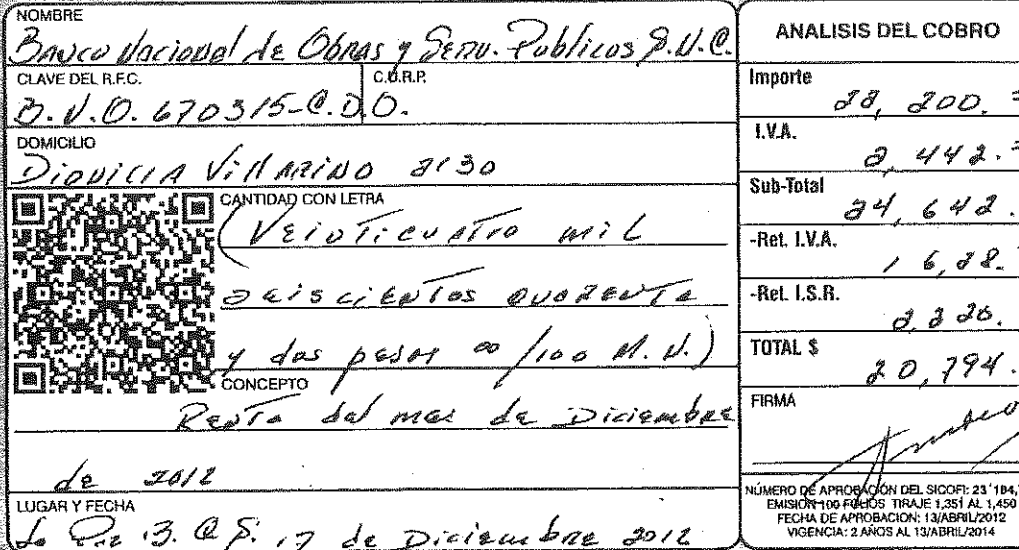 NOMBRE
Banco Nacional de Obras y Serv. Publicos S.N.C.
CLAVE DEL R.F.C.
C.U.R.P.
B.N.O. 670315-C.D.O.
DOMICILIO
Dionicia Villarino 2130
CANTIDAD CON LETRA
(Veinticuatro mil
seiscientos cuarenta
y dos pesos 00/100 M.N.)
CONCEPTO
Renta del mes de Diciembre
de 2012
LUGAR Y FECHA
La Paz B.C.S. 17 de Diciembre 2012
ANALISIS DEL COBRO
Importe
22,200.
I.V.A.
2,442.
Sub-Total
24,642.
-Ret. I.V.A.
1628.
-Ret. I.S.R.
2,220.
TOTAL $
20,794.
FIRMA
NÚMERO DE APROBACIÓN DEL SICOFI: 23'184,
EMISIÓN 100 FOLIOS TIRAJE 1,351 AL 1,450
FECHA DE APROBACION: 13/ABRIL/2012
VIGENCIA: 2 AÑOS AL 13/ABRIL/2014